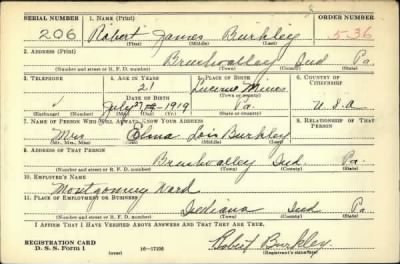 SERIAL NUMBER 1. NAME (Print) ORDER NUMBER
206 Robert James Burkley 5-36
(First) (Middle) (Last)
2. ADDRESS (Print)
Brushvalley Ind Pa.
(Number and street or R. F. D. number) (Town) (County) (State)
3. TELEPHONE 4. AGE IN YEARS 5. PLACE OF BIRTH 6. COUNTRY OF CITIZENSHIP
21 Lucerne Mines
DATE OF BIRTH (Town or county)
July 1919 Pa. U.S.A
(Exchange) (No.) (Mo.) (Day) (Yr.) (State or country)
7. NAME OF PERSON WHO WILL ALWAYS KNOW YOUR ADDRESS 8. RELATIONSHIP OF THAT PERSON
Mrs Elma Lois Burkley
(Mr., Mrs., Miss) (First) (Middle) (Last)
9. ADDRESS OF THAT PERSON
Brushvalley Ind. Pa.
(Number and street or R. F. D. number) (Town) (County) (State)
10. EMPLOYER'S NAME
Montgomery Ward
11. PLACE OF EMPLOYMENT OR BUSINESS
Indiana Ind Pa.
(Number and street or R. F. D. number) (Town) (County) (State)
I AFFIRM THAT I HAVE VERIFIED ABOVE ANSWERS AND THAT THEY ARE TRUE.
REGISTRATION CARD
D. S. S. Form 1 (over) 16-17105 Robert Burkley